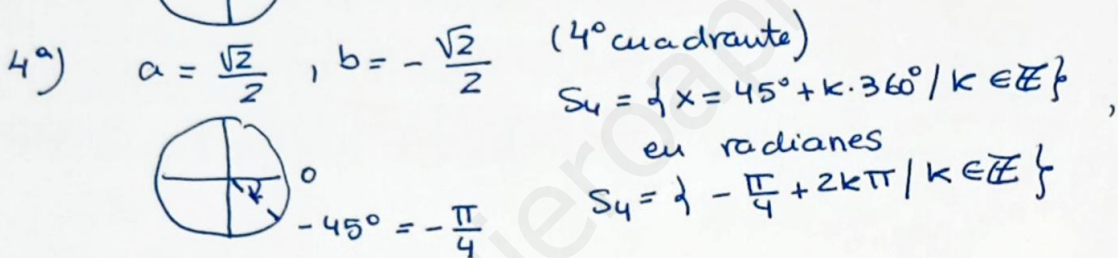 4ª) a = √2/2 , b = - √2/2 (4º cuadrante)
S₄ = { x = 45° + k·360° / k ∈ ℤ } ,
en radianes
S₄ = { - π/4 + 2kπ / k ∈ ℤ }
0
- 45° = - π/4